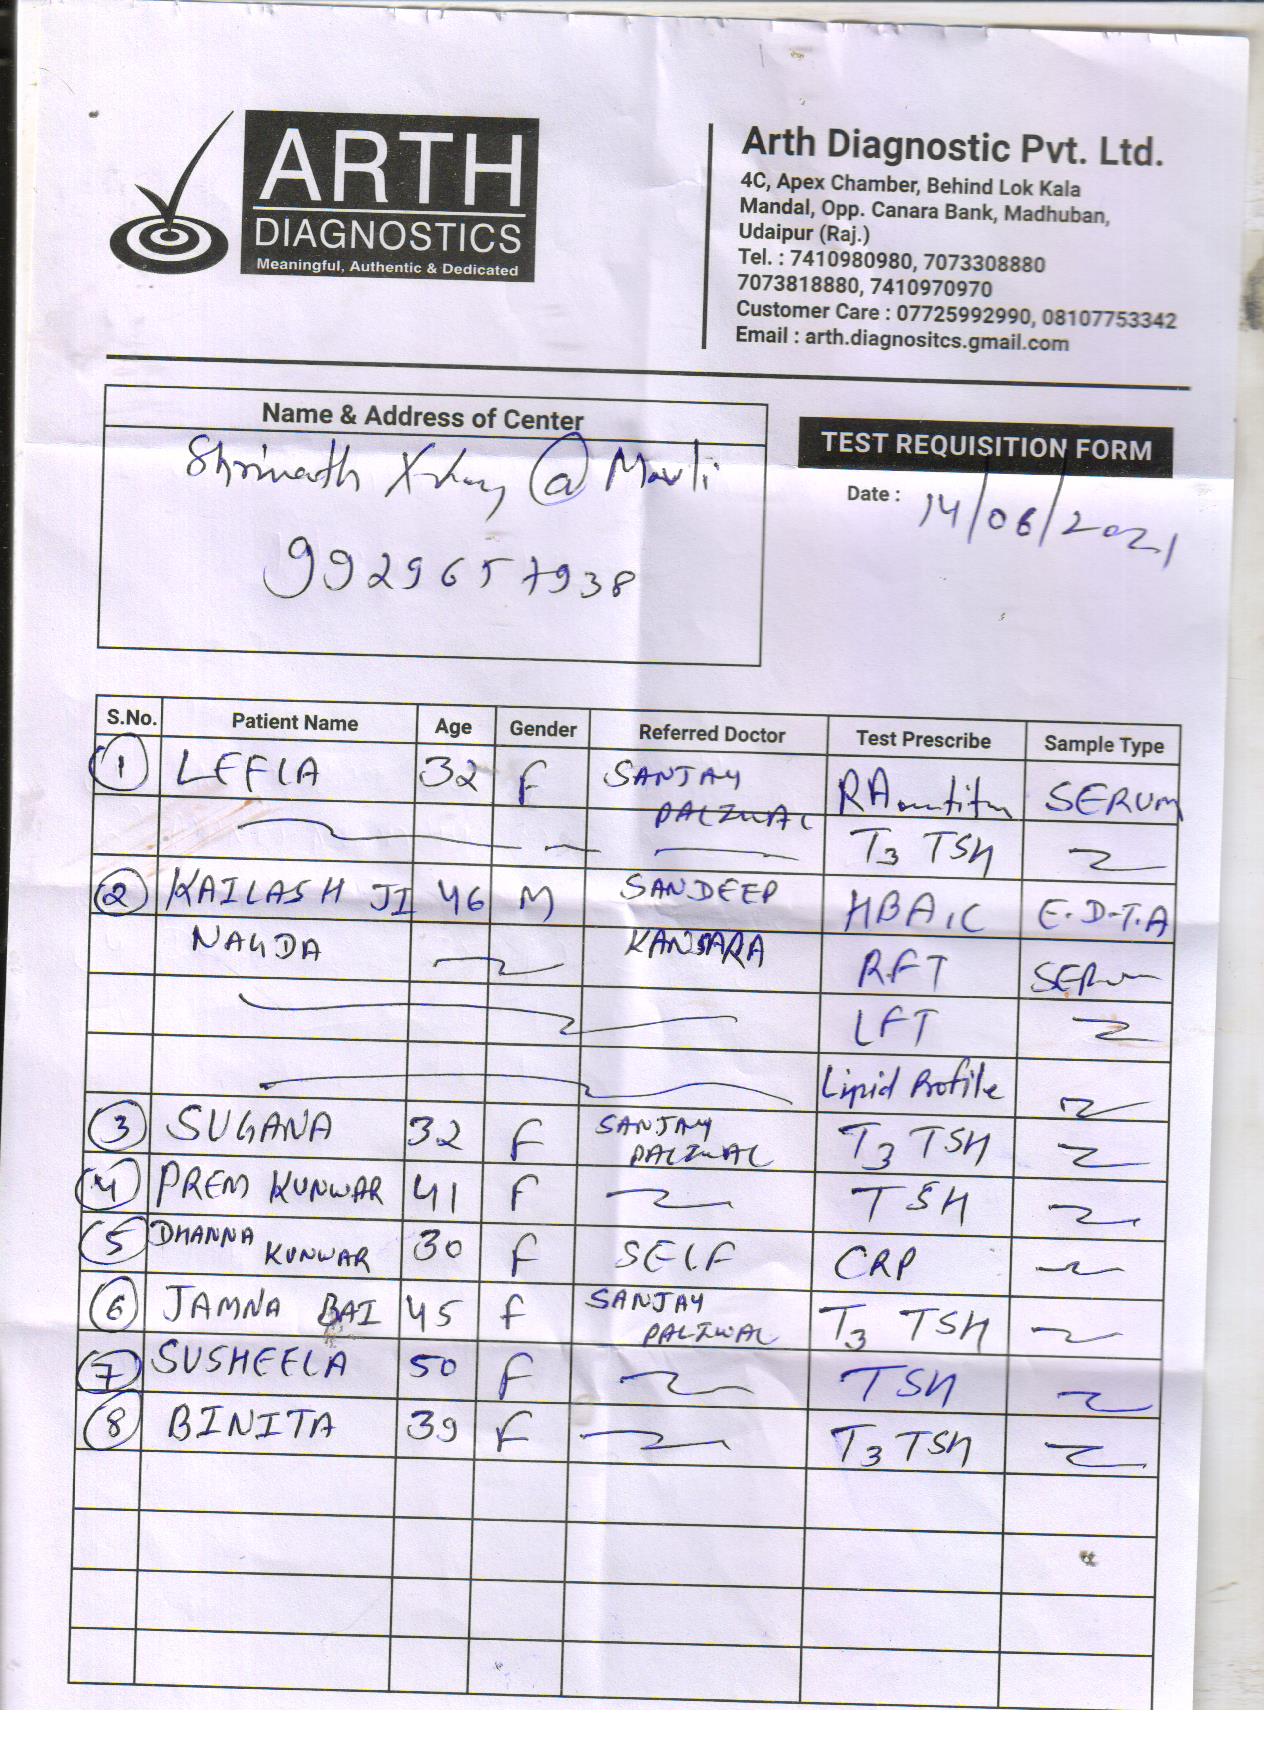 ARTH
DIAGNOSTICS
Meaningful, Authentic & Dedicated
Arth Diagnostic Pvt. Ltd.
4C, Apex Chamber, Behind Lok Kala
Mandal, Opp. Canara Bank, Madhuban,
Udaipur (Raj.)
Tel. : 7410980980, 7073308880
7073818880, 7410970970
Customer Care : 07725992990, 08107753342
Email : arth.diagnositcs.gmail.com
Name & Address of Center
Shrinath Xray @ Mavli
9929657938
TEST REQUISITION FORM
Date : 14/06/2021
S.No. Patient Name Age Gender Referred Doctor Test Prescribe Sample Type
1 LEELA 32 F SANJAY PALIWAL RA SERUM
T3 TSH
2 KAILASH JI 46 M SANDEEP HBA1C E.D.T.A
NAGDA KANSARA RFT SERUM
LFT
Lipid Profile
3 SUGANA 32 F SANJAY PALIWAL T3 TSH
4 PREM KUNWAR 41 F TSH
5 DHANNA KUNWAR 30 F SELF CRP
6 JAMNA BAI 45 F SANJAY PALIWAL T3 TSH
7 SUSHEELA 50 F TSH
8 BINITA 39 F T3 TSH